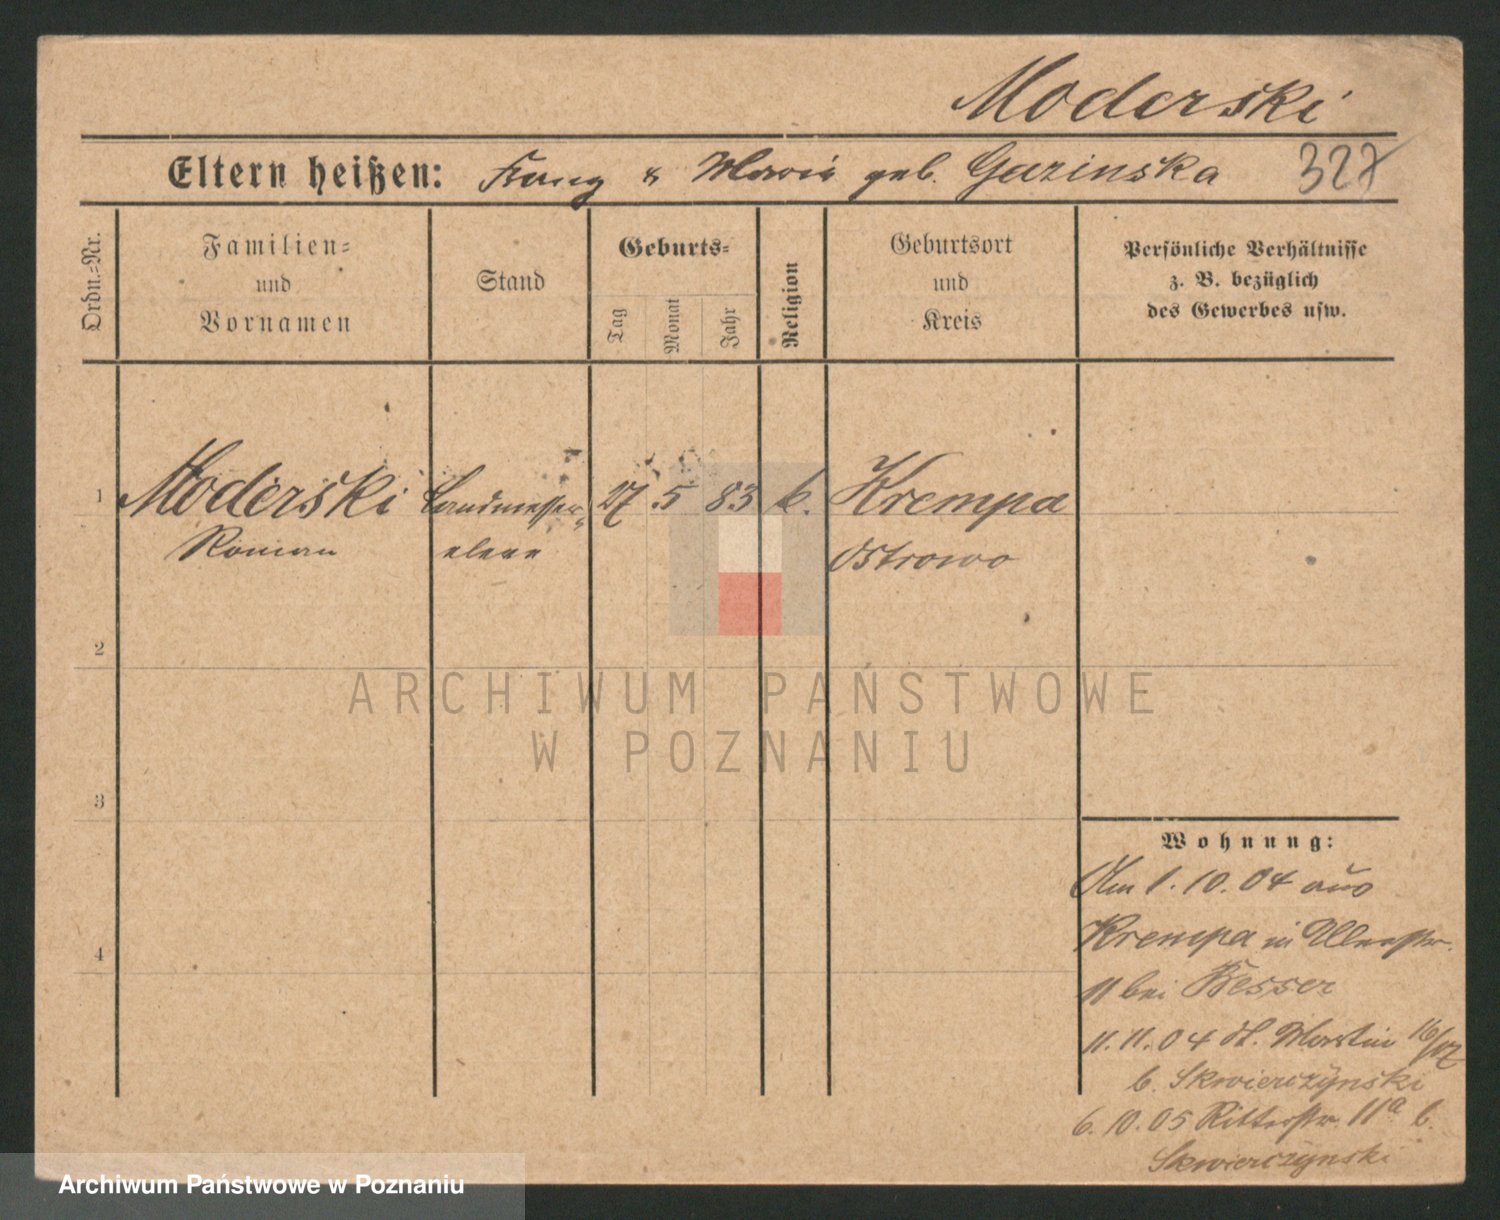 Moderski
Eltern heißen: Franz & Marie geb. Gazinska 327
Ordn.=Nr.
Familien=
und
Vornamen
Stand
Geburts=
Tag
Monat
Jahr
Religion
Geburtsort
und
Kreis
Persönliche Verhältnisse
z. B. bezüglich
des Gewerbes usw.
1 Moderski Landmesser= 27 5 83 k. Krempa
Roman eleve Ostrowo
2
3
4
Wohnung:
Am 1.10.04 aus
Krempa in
11 bei Besser
11.11.04 St. Martin 16/17
b. Skwierczynski
6.10.05 Ritterstr. 11a b.
Skwierczynski
ARCHIWUM PAŃSTWOWE
W POZNANIU
Archiwum Państwowe w Poznaniu